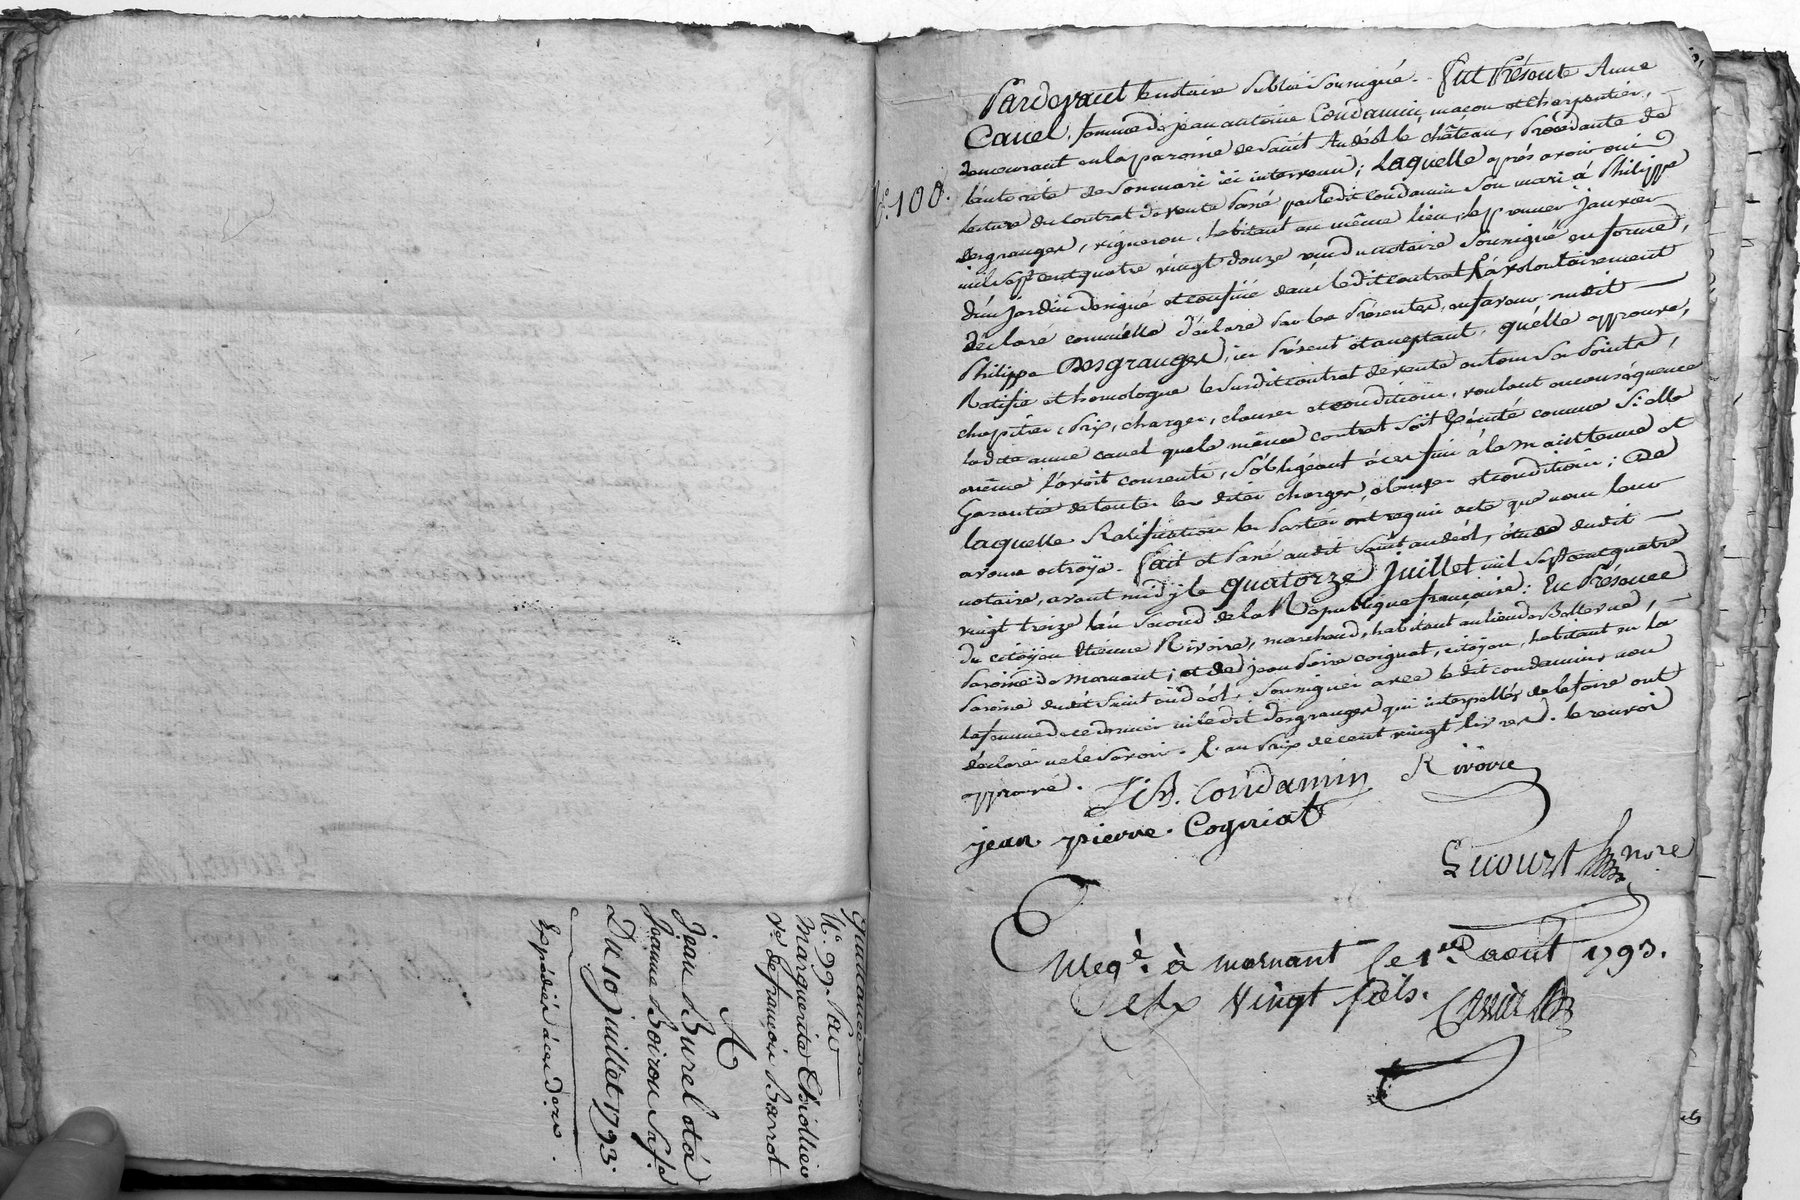 Quittance de
N.° 99. Par
Marguerite Chollier
v.e de françois Barrot
A
Jean Burel et à
Jeanne Boiron sa fe
Du 10 juillet 1793.
Expédié à ces d.ers.
N.° 100.
Pardevant le notaire Public soussigné. fut Présente Anne
Canel, femme de jean antoine Condamin, maçon et charpentier,
demeurant en la paroisse de saint Andéol le château, Procédante de
l'autorité de son mari ici intervenu; Laquelle après avoir oui
lecture du Contrat de vente Passé par ledit condamin son mari à Philippe
desgranges, vigneron, habitant au même lieu, le premier janvier
mil sept cent quatre vingt douze reçu du notaire soussigné en forme,
d'un jardin désigné et confiné dans ledit contrat &, a volontairement
déclaré comme elle déclare Par les Présentes, en faveur dudit
Philippe Desgranges, ici Présent et acceptant, qu'elle approuve,
Ratifie et homologue le susdit contrat de vente en tous ses Points,
chapitres, Prix, charges, clauses et conditions, voulant en conséquence
lad.te anne canel que le même contrat soit Exécuté comme si elle
même l'avoit consenti, s'obligeant à ces fins à la maintenue et
Garantie de toutes les dites charges, clauses et conditions; De
laquelle Ratification les Parties ont requis acte que nous leur
avons octroyé. fait et Passé audit Saint andéol, étude dudit
notaire, avant midy le quatorze Juillet mil sept cent quatre
vingt treize l'an second de la République française: En Présence
du citoyen Etienne Rivoire, marchand, habitant au lieu de Bellevue,
Paroisse de Mornant; et de jean Pierre coignat, citoyen, habitant en la
Paroisse dudit Saint andéol, soussignés avec ledit condamin, non
la femme de ce dernier ni ledit desgranges qui interpellés de le faire ont
déclaré ne le savoir. &. au Prix de cent vingt livres. le renvoi
approuvé. J A. condamin Rivoire
jean pierre Cogniat
Lucourt Nore
Enregé. à mornant le 1er aout 1793.
vingt sols.